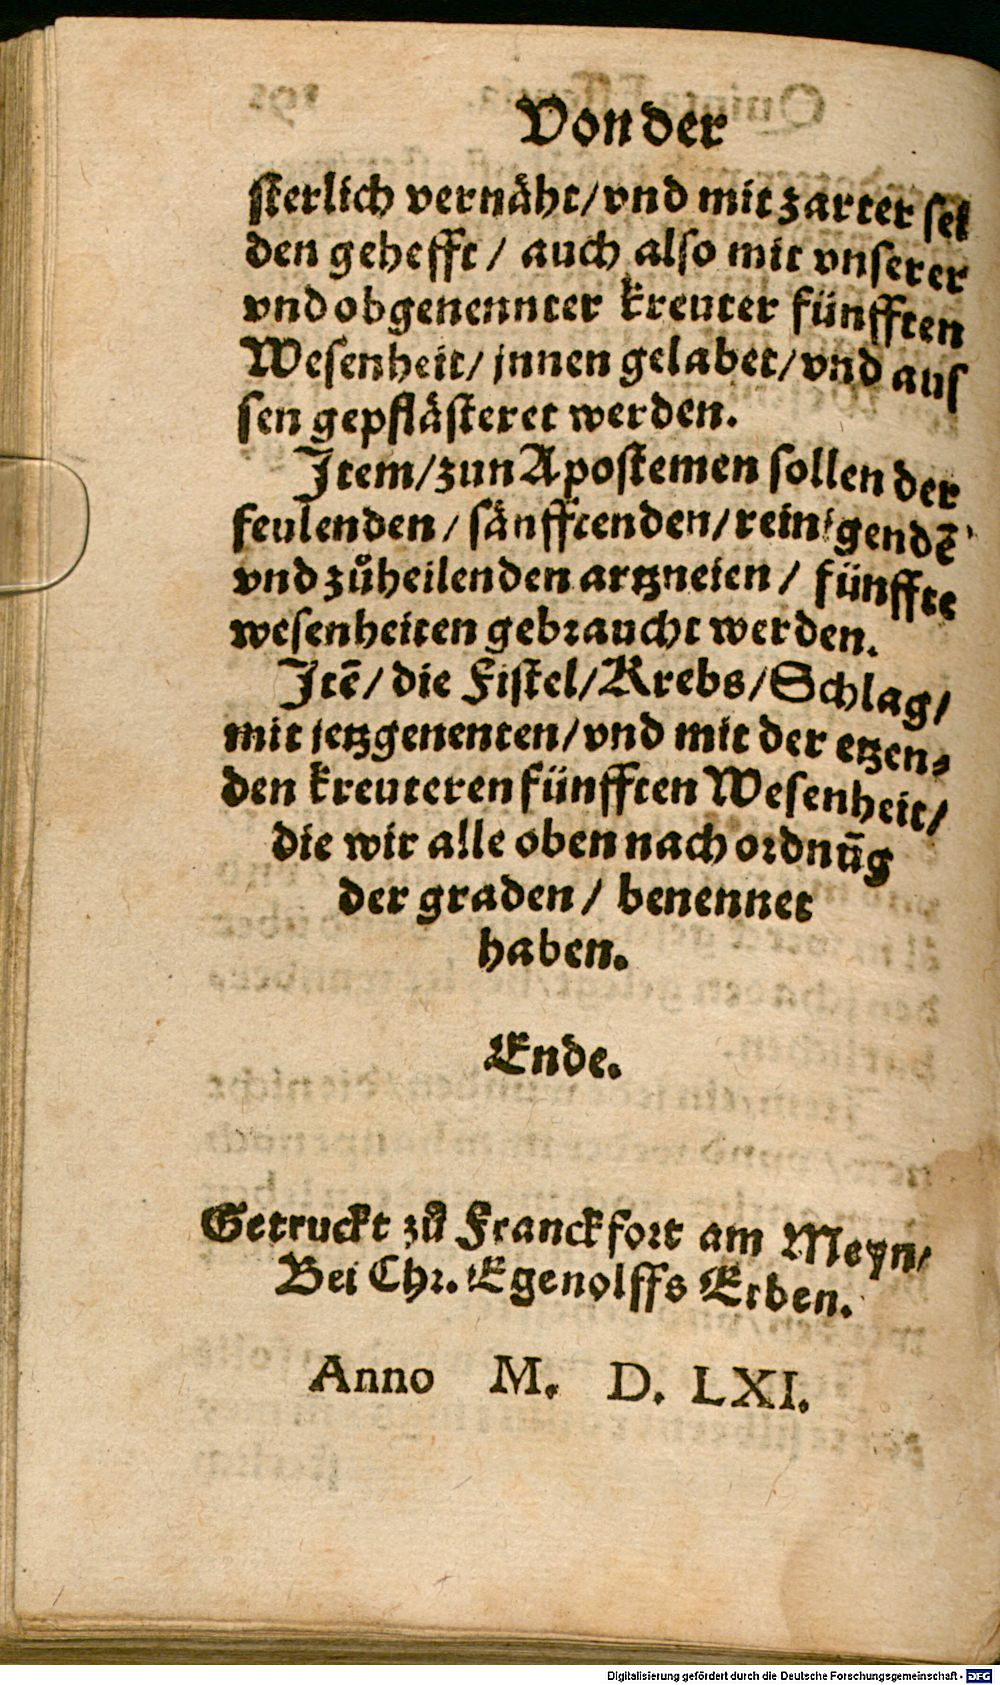 Von der
sterlich vernäht/vnd mit zarter sei
den gehefft/ auch also mit vnserer
vnd obgenennter kreuter fünfften
Wesenheit/ jnnen gelabet/vnd aus
sen gepflästeret werden.
Item/zun Apostemen sollen der
feulenden/ sänfftenden/reinigendē
vnd zůheilenden artzneien/ fünffte
wesenheiten gebraucht werden.
Itē/ die Fistel/Krebs/Schlag/
mit jetzgenenten/vnd mit der etzen-
den kreuteren fünfften Wesenheit/
die wir alle oben nach ordnūg
der graden/ benennet
haben.
Ende.
Getruckt zů Franckfort am Meyn/
Bei Chr. Egenolffs Erben.
Anno M. D. LXI.
Digitalisierung gefördert durch die Deutsche Forschungsgemeinschaft - DFG